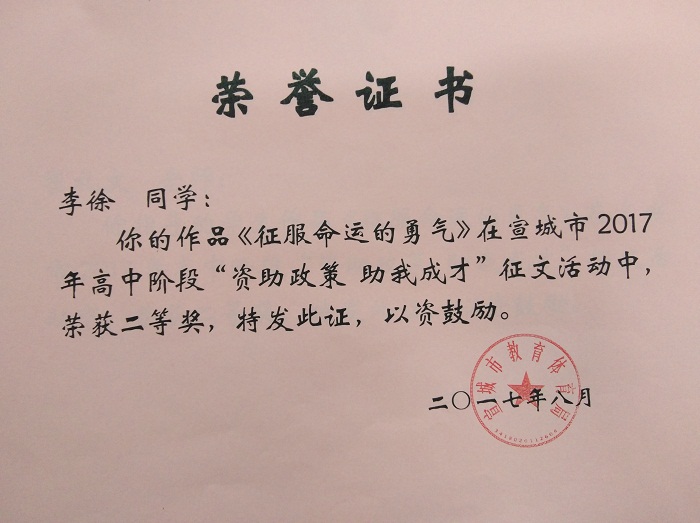 荣誉证书
李徐 同学：
你的作品《征服命运的勇气》在宣城市2017
年高中阶段“资助政策 助我成才”征文活动中，
荣获二等奖，特发此证，以资鼓励。
宣城市教育体育局
二〇一七年八月